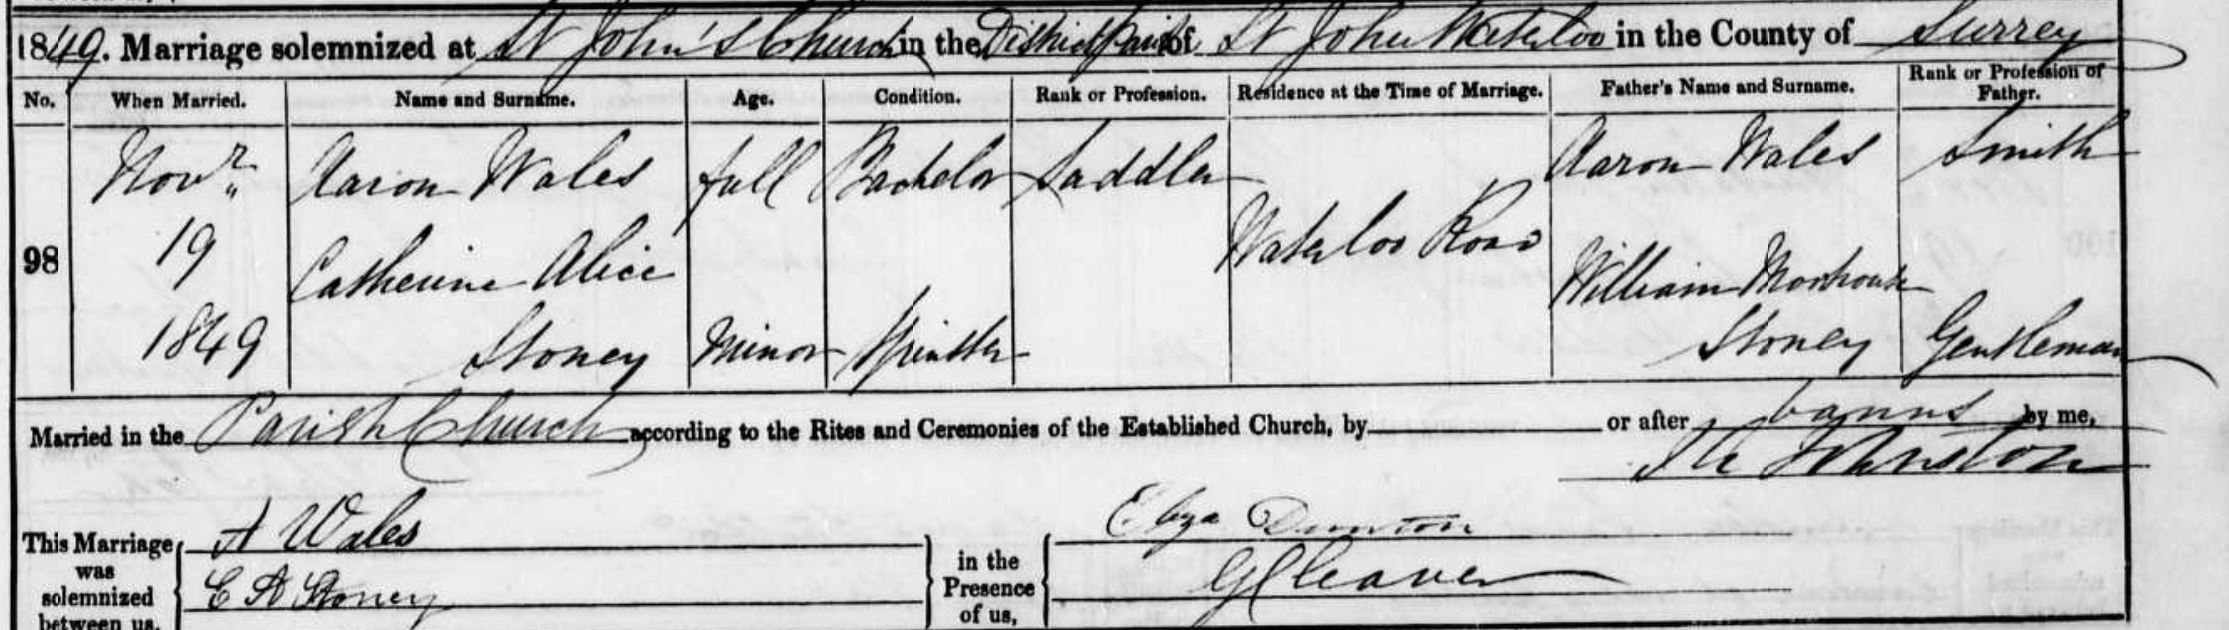 1849. Marriage solemnized at St John's Church in the District Parish of St John Waterloo in the County of Surrey
No. When Married. Name and Surname. Age. Condition. Rank or Profession. Residence at the Time of Marriage. Father's Name and Surname. Rank or Profession of Father.
98
Novr 19 1849
Aaron Wales full Bachelor Saddler Aaron Wales Smith
Waterloo Road
Catherine Alice William Moorhouse
Stoney Minor Spinster Stoney Gentleman
Married in the Parish Church according to the Rites and Ceremonies of the Established Church, by or after banns by me,
Johnston
This Marriage was solemnized between us,
A Wales
C A Stoney
in the Presence of us,
Eliza
G Cleaver